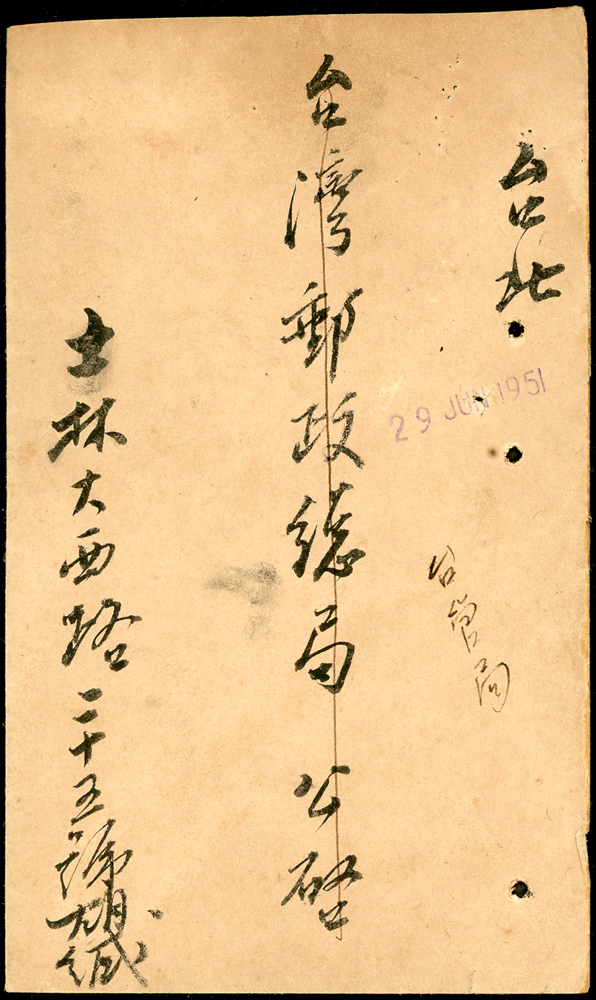 台北
29 JUN 1951
台灣郵政總局 公啓
士林大西路二十五號 緘